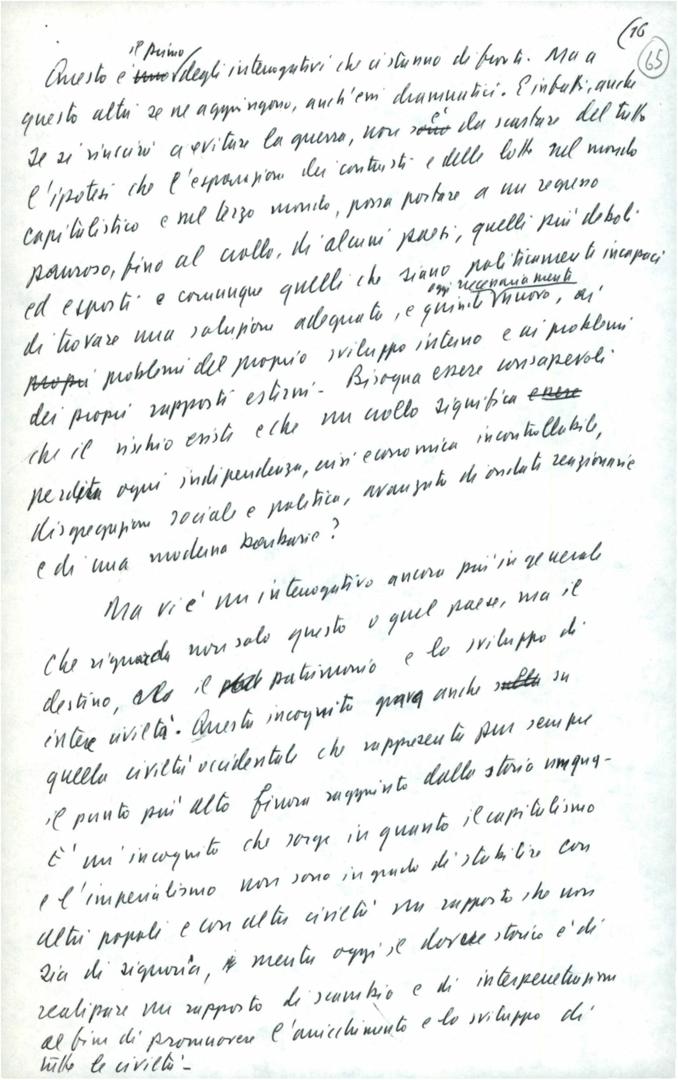 (16
65
il primo
Questo è uno degli interrogativi che ci stanno di fronte. Ma a
questo altri se ne aggiungono, anch'essi drammatici. E infatti, anche
se si riuscirà a evitare la guerra, non è da scartare del tutto
l'ipotesi che l'espansione dei contrasti e delle lotte nel mondo
capitalistico e nel terzo mondo, possa portare a un regresso
pauroso, fino al crollo, di alcuni paesi, quelli più deboli
ed esposti e comunque quelli che siano politicamente incapaci
oggi necessariamente
di trovare una soluzione adeguata, e quindi nuova, ai
propri problemi del proprio sviluppo interno e ai problemi
dei propri rapporti esterni. Bisogna essere consapevoli
che il rischio esiste e che un crollo significa essere
perdita ogni indipendenza, crisi economica incontrollabile,
disgregazione sociale e politica, avanzata di ondate reazionarie
e di una moderna barbarie?
Ma vi è un interrogativo ancora più in generale
che riguarda non solo questo o quel paese, ma il
destino, il patrimonio e lo sviluppo di
intere civiltà. Questa incognita grava anche sulla su
quella civiltà occidentale che rappresenta pur sempre
il punto più alto finora raggiunto dalla storia umana.
E' un'incognita che sorge in quanto il capitalismo
e l'imperialismo non sono in grado di stabilire con
altri popoli e con altre civiltà un rapporto che non
sia di signoria, mentre oggi il dovere storico è di
realizzare un rapporto di scambio e di interpenetrazione
al fine di promuovere l'arricchimento e lo sviluppo di
tutte le civiltà.